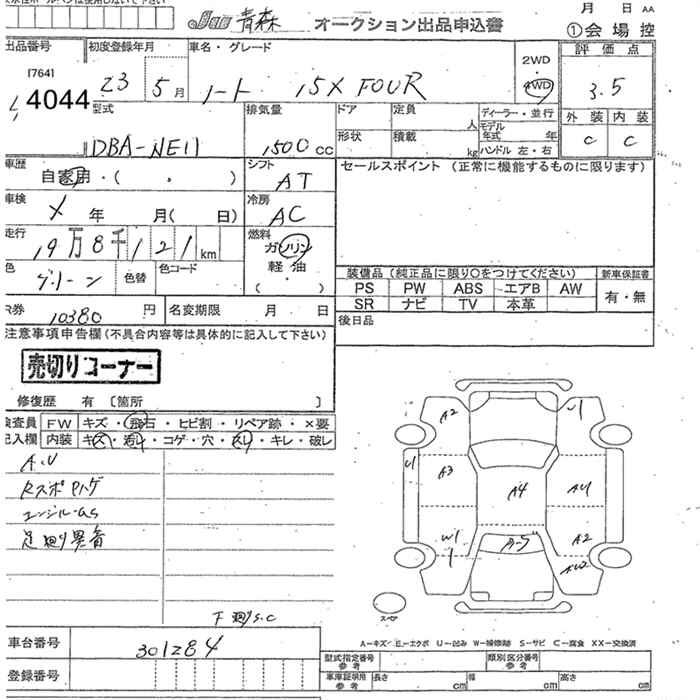 青森 オークション出品申込書
月 日 AA
①会場控
出品番号 初度登録年月 車名・グレード 2WD 4WD 評価点
[764]
4044
23 年 5 月 ノート 15X FOUR 3.5
外装 内装
C C
型式 排気量 ドア 定員 人 ディーラー・並行
モデル年式 年
形状 積載 kg ハンドル 左・右
DBA-NE11 1500 cc
車歴 自家用・( ・ ) シフト AT
セールスポイント (正常に機能するものに限ります)
車検 X 年 月( 日) 冷房 AC
走行 19万8千121 km 燃料 ガソリン
軽油
( ・ )
色 グリーン 色替 色コード
装備品(純正品に限り○をつけてください) 新車保証書
PS PW ABS エアB AW 有・無
SR ナビ TV 本革
R券 10380 円 名変期限 月 日
後日品
注意事項申告欄(不具合内容等は具体的に記入して下さい)
売切りコーナー
修復歴 有 [箇所 ]
検査員 FW キズ・飛石・ヒビ割・リペア跡・×要
記入欄 内装 キズ・汚れ・コゲ・穴・スレ・キレ・破レ
A.U
Rスポ Pハゲ
エンジル・as
足廻り異音
下廻りS.C
A2 U1
U1 A3 A4 AU
W1 A2
1 A-5 AU2
スペア
A-キズ E-エクボ U-凹み W-補修跡 S-サビ C-腐食 XX-交換済
車台番号 301284
登録番号
型式指定番号 参考 類別区分番号 参考
車庫証明用 参考 長さ cm 幅 cm 高さ cm